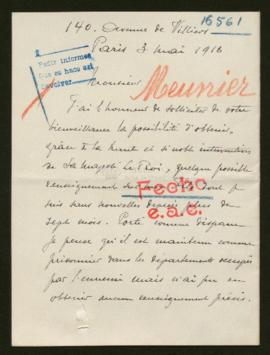 16561
140. Avenue de Villiers
Paris 3 mai 1916
Pedir informes
que se hace así
devolver
Monsieur
Meunier
J'ai l'honneur de solliciter de votre
bienveillance la possibilité d'obtenir,
grâce à la haute et si noble intervention
de Sa Majesté le Roi, quelque possible
renseignement sur mon fils dont je
Fecho
suis sans nouvelles depuis plus de
e.a.c.
sept mois. Porté comme disparu
je pense qu'il est maintenu comme
prisonnier dans les départements occupés
par l'ennemi mais n'ai pu en
obtenir aucun renseignement précis.